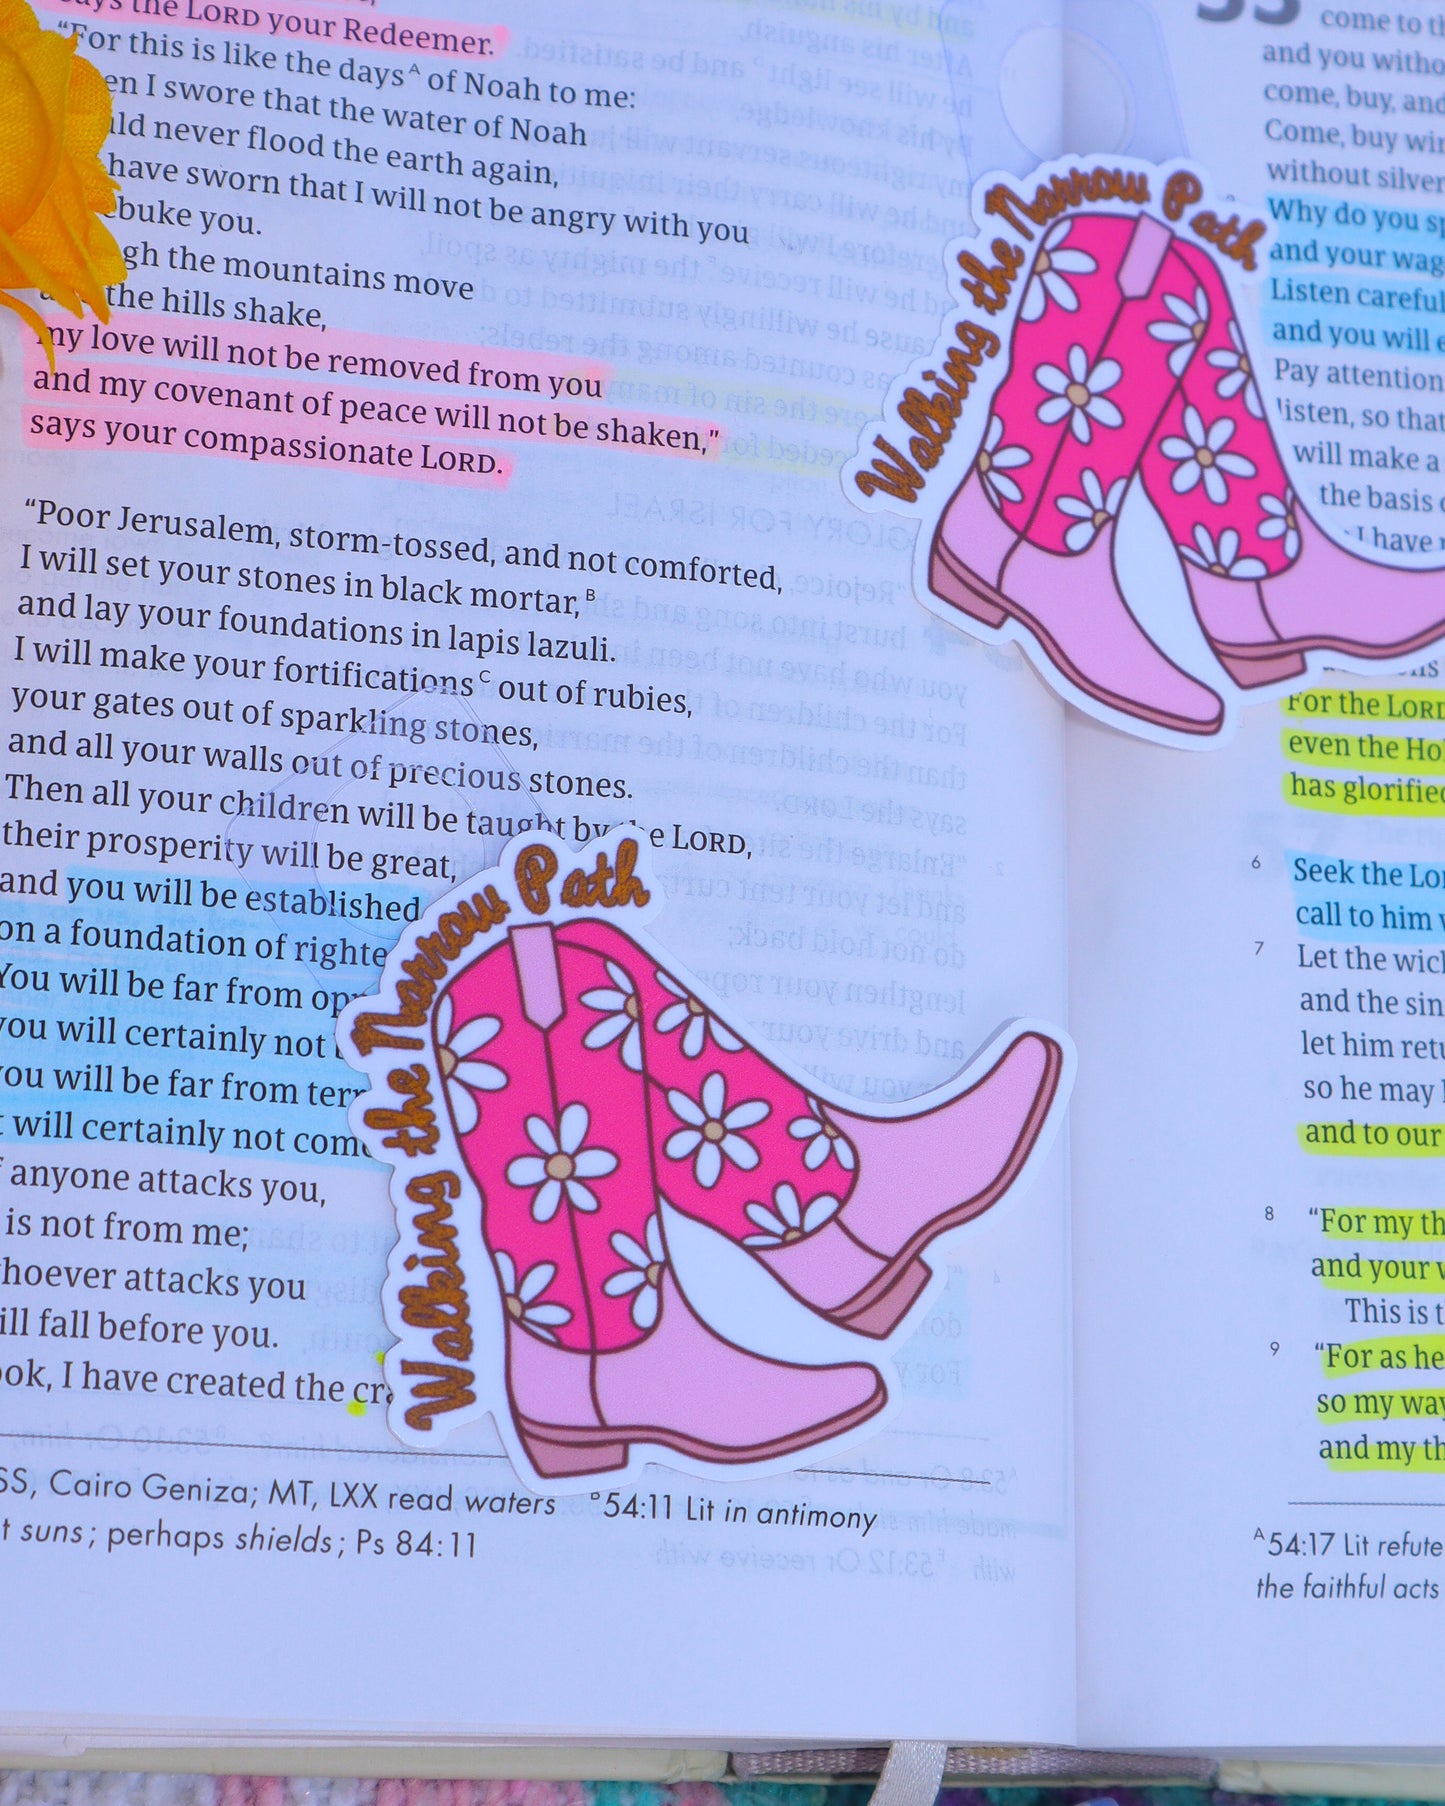 the LORD your Redeemer.
“For this is like the days A of Noah to me:
I swore that the water of Noah
never flood the earth again,
have sworn that I will not be angry with you
you.
the mountains move
the hills shake,
my love will not be removed from you
and my covenant of peace will not be shaken,”
says your compassionate LORD.
“Poor Jerusalem, storm-tossed, and not comforted,
I will set your stones in black mortar, B
and lay your foundations in lapis lazuli.
I will make your fortifications C out of rubies,
your gates out of sparkling stones,
and all your walls out of precious stones.
Then all your children will be taught by the LORD,
their prosperity will be great,
and you will be established
on a foundation of righte
You will be far from opp
you will certainly not
you will be far from terr
will certainly not come
anyone attacks you,
is not from me;
hoever attacks you
ill fall before you.
ook, I have created the cra
SS, Cairo Geniza; MT, LXX read waters B 54:11 Lit in antimony
t suns; perhaps shields; Ps 84:11
Walking the Narrow Path
Walking the Narrow Path
come to th
and you witho
come, buy, and
Come, buy win
without silver
Why do you sp
and your wag
Listen careful
and you will e
Pay attention
listen, so that
will make a
the basis o
I have
For the LORD
even the Ho
has glorified
6 Seek the LOR
call to him w
7 Let the wick
and the sin
let him retu
so he may
and to our
8 “For my th
and your w
This is t
9 “For as he
so my way
and my th
A 54:17 Lit refute
the faithful acts